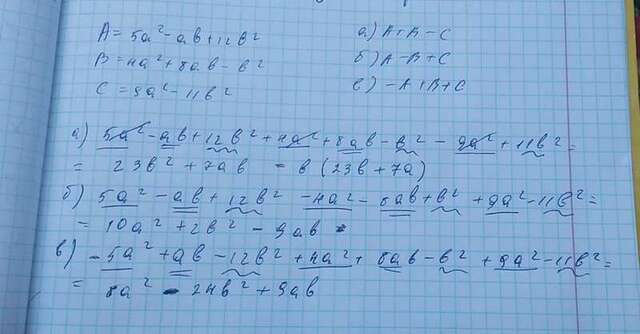 A = 5a² - ab + 12b² а) A + B - C
B = 4a² + 8ab - b² б) A - B + C
C = 9a² - 11b² в) -A + B + C
а) 5a² - ab + 12b² + 4a² + 8ab - b² - 9a² + 11b² =
= 23b² + 7ab = b(23b + 7a)
б) 5a² - ab + 12b² - 4a² - 8ab + b² + 9a² - 11b² =
= 10a² + 2b² - 9ab
в) -5a² + ab - 12b² + 4a² + 8ab - b² + 9a² - 11b² =
= 8a² - 24b² + 9ab